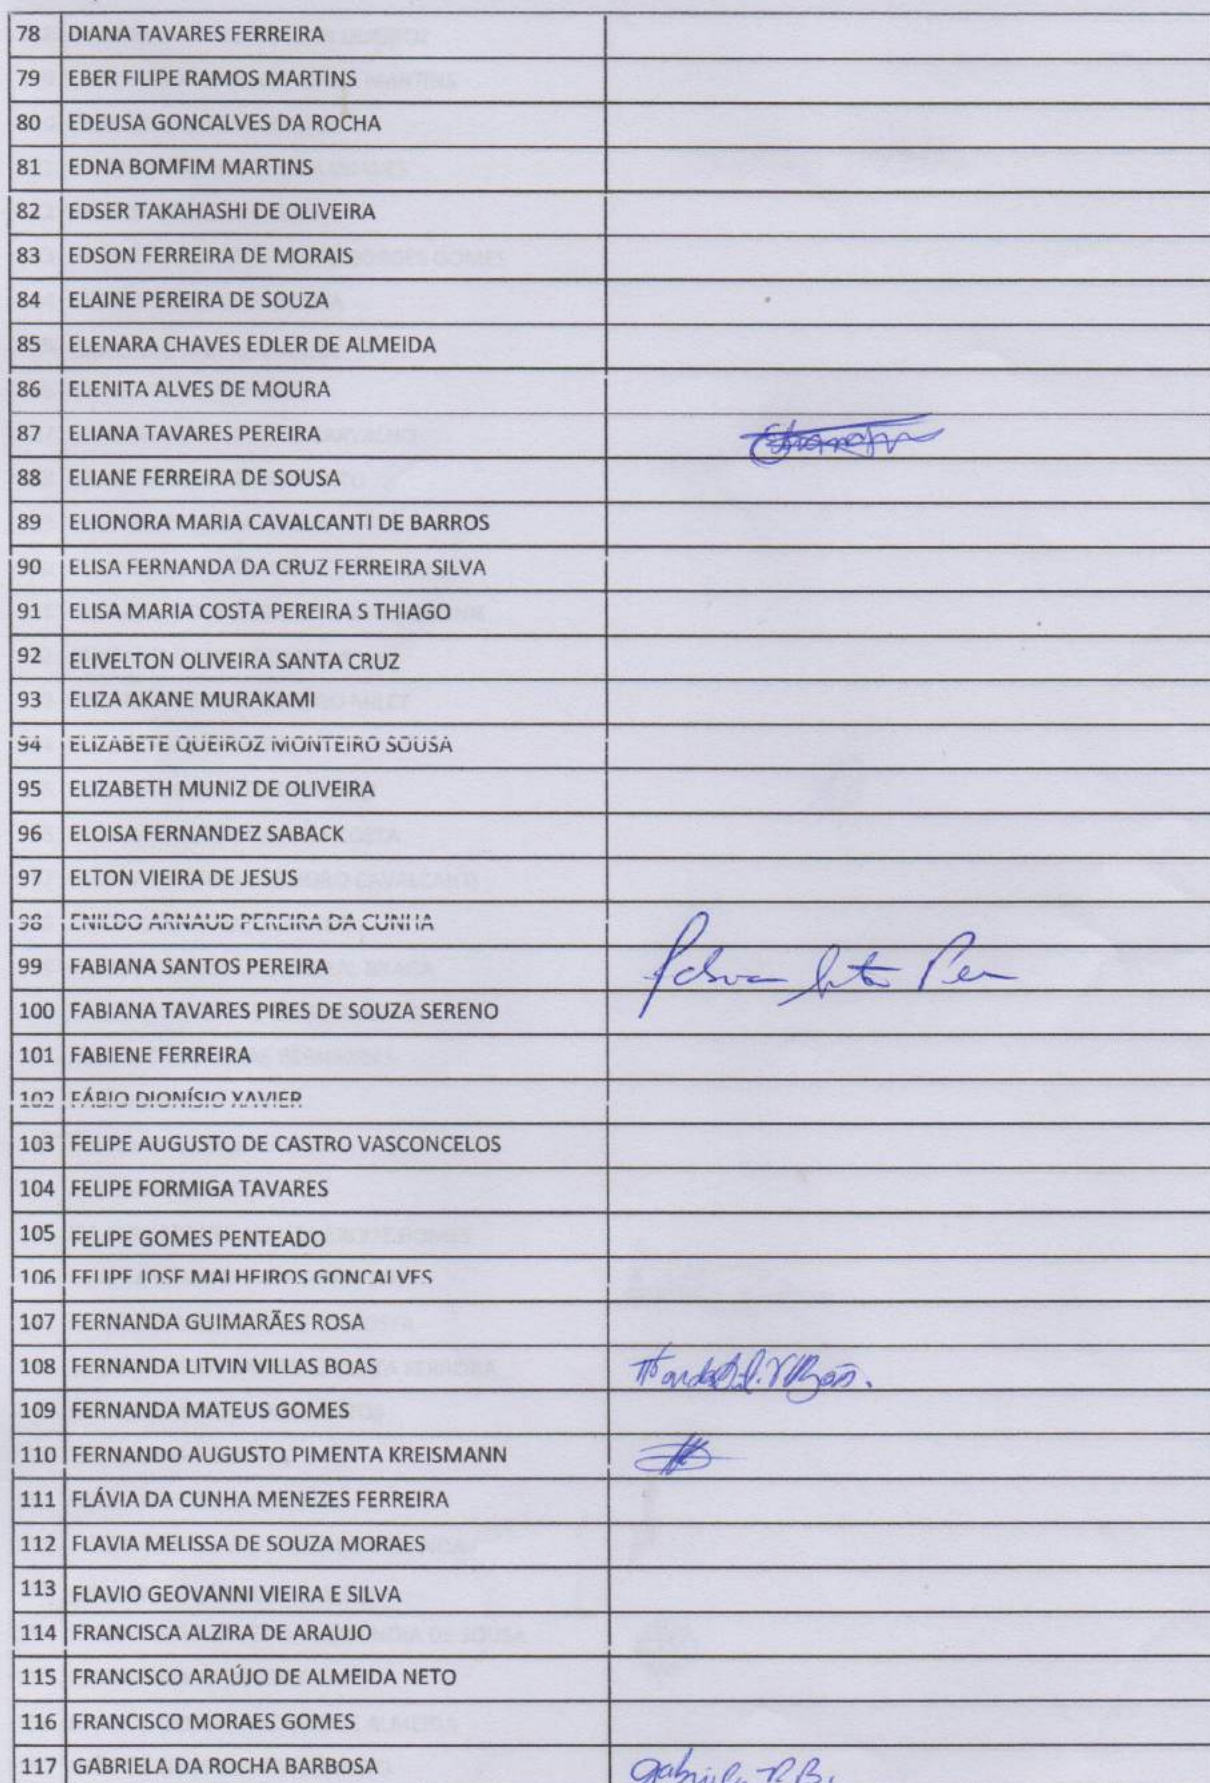 78 DIANA TAVARES FERREIRA
79 EBER FILIPE RAMOS MARTINS
80 EDEUSA GONCALVES DA ROCHA
81 EDNA BOMFIM MARTINS
82 EDSER TAKAHASHI DE OLIVEIRA
83 EDSON FERREIRA DE MORAIS
84 ELAINE PEREIRA DE SOUZA
85 ELENARA CHAVES EDLER DE ALMEIDA
86 ELENITA ALVES DE MOURA
87 ELIANA TAVARES PEREIRA
88 ELIANE FERREIRA DE SOUSA
89 ELIONORA MARIA CAVALCANTI DE BARROS
90 ELISA FERNANDA DA CRUZ FERREIRA SILVA
91 ELISA MARIA COSTA PEREIRA S THIAGO
92 ELIVELTON OLIVEIRA SANTA CRUZ
93 ELIZA AKANE MURAKAMI
94 ELIZABETE QUEIROZ MONTEIRO SOUSA
95 ELIZABETH MUNIZ DE OLIVEIRA
96 ELOISA FERNANDEZ SABACK
97 ELTON VIEIRA DE JESUS
98 ENILDO ARNAUD PEREIRA DA CUNHA
99 FABIANA SANTOS PEREIRA
100 FABIANA TAVARES PIRES DE SOUZA SERENO
101 FABIENE FERREIRA
102 FÁBIO DIONÍSIO XAVIER
103 FELIPE AUGUSTO DE CASTRO VASCONCELOS
104 FELIPE FORMIGA TAVARES
105 FELIPE GOMES PENTEADO
106 FELIPE JOSE MALHEIROS GONCALVES
107 FERNANDA GUIMARÃES ROSA
108 FERNANDA LITVIN VILLAS BOAS
109 FERNANDA MATEUS GOMES
110 FERNANDO AUGUSTO PIMENTA KREISMANN
111 FLÁVIA DA CUNHA MENEZES FERREIRA
112 FLAVIA MELISSA DE SOUZA MORAES
113 FLAVIO GEOVANNI VIEIRA E SILVA
114 FRANCISCA ALZIRA DE ARAUJO
115 FRANCISCO ARAÚJO DE ALMEIDA NETO
116 FRANCISCO MORAES GOMES
117 GABRIELA DA ROCHA BARBOSA Gabriela R.B.